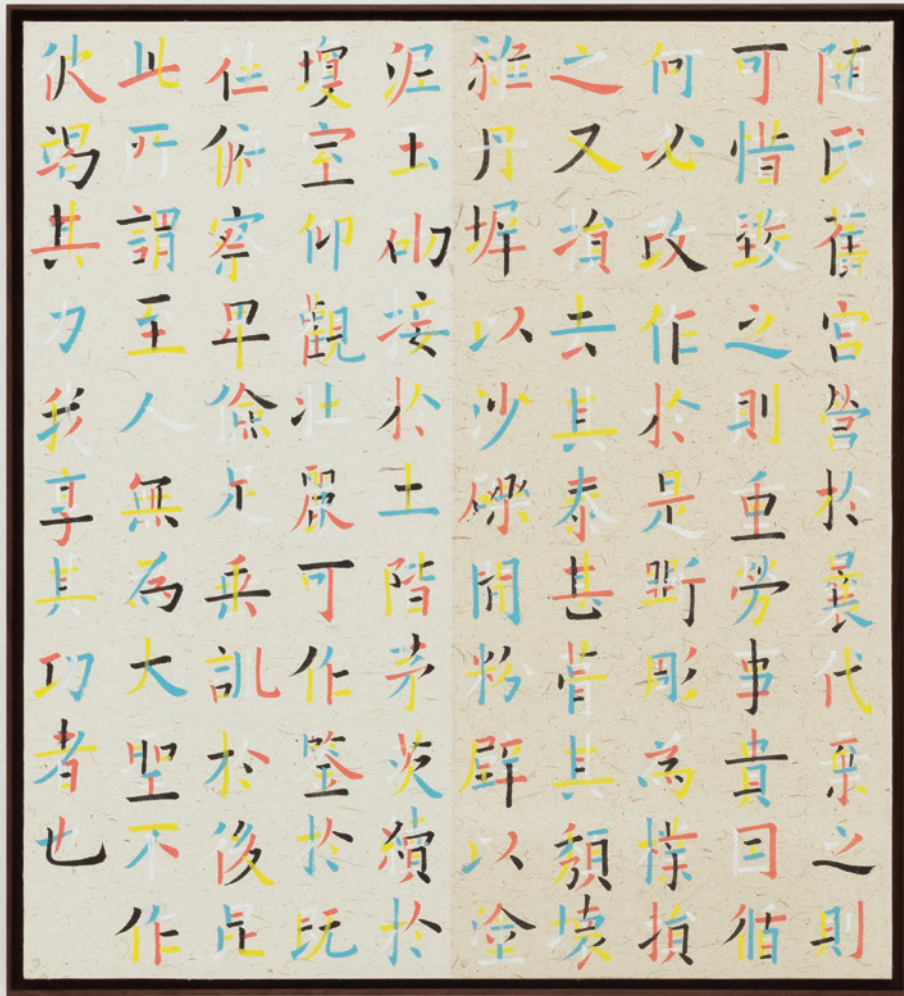 随氏舊宮營於曩代棄之則
可惜毀之則重勞事貴因循
何必改作於是斵彫為樸損
之又損去其泰甚葺其頹壞
雜丹墀以沙礫間粉壁以塗
泥玉砌接於土階茅茨續於
瓊室仰觀壯麗可作鑒於既
往俯察卑儉足垂訓於後昆
此所謂至人無為大聖不作
彼竭其力我享其功者也